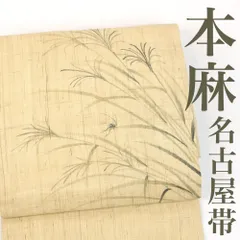 本麻
名古屋帯